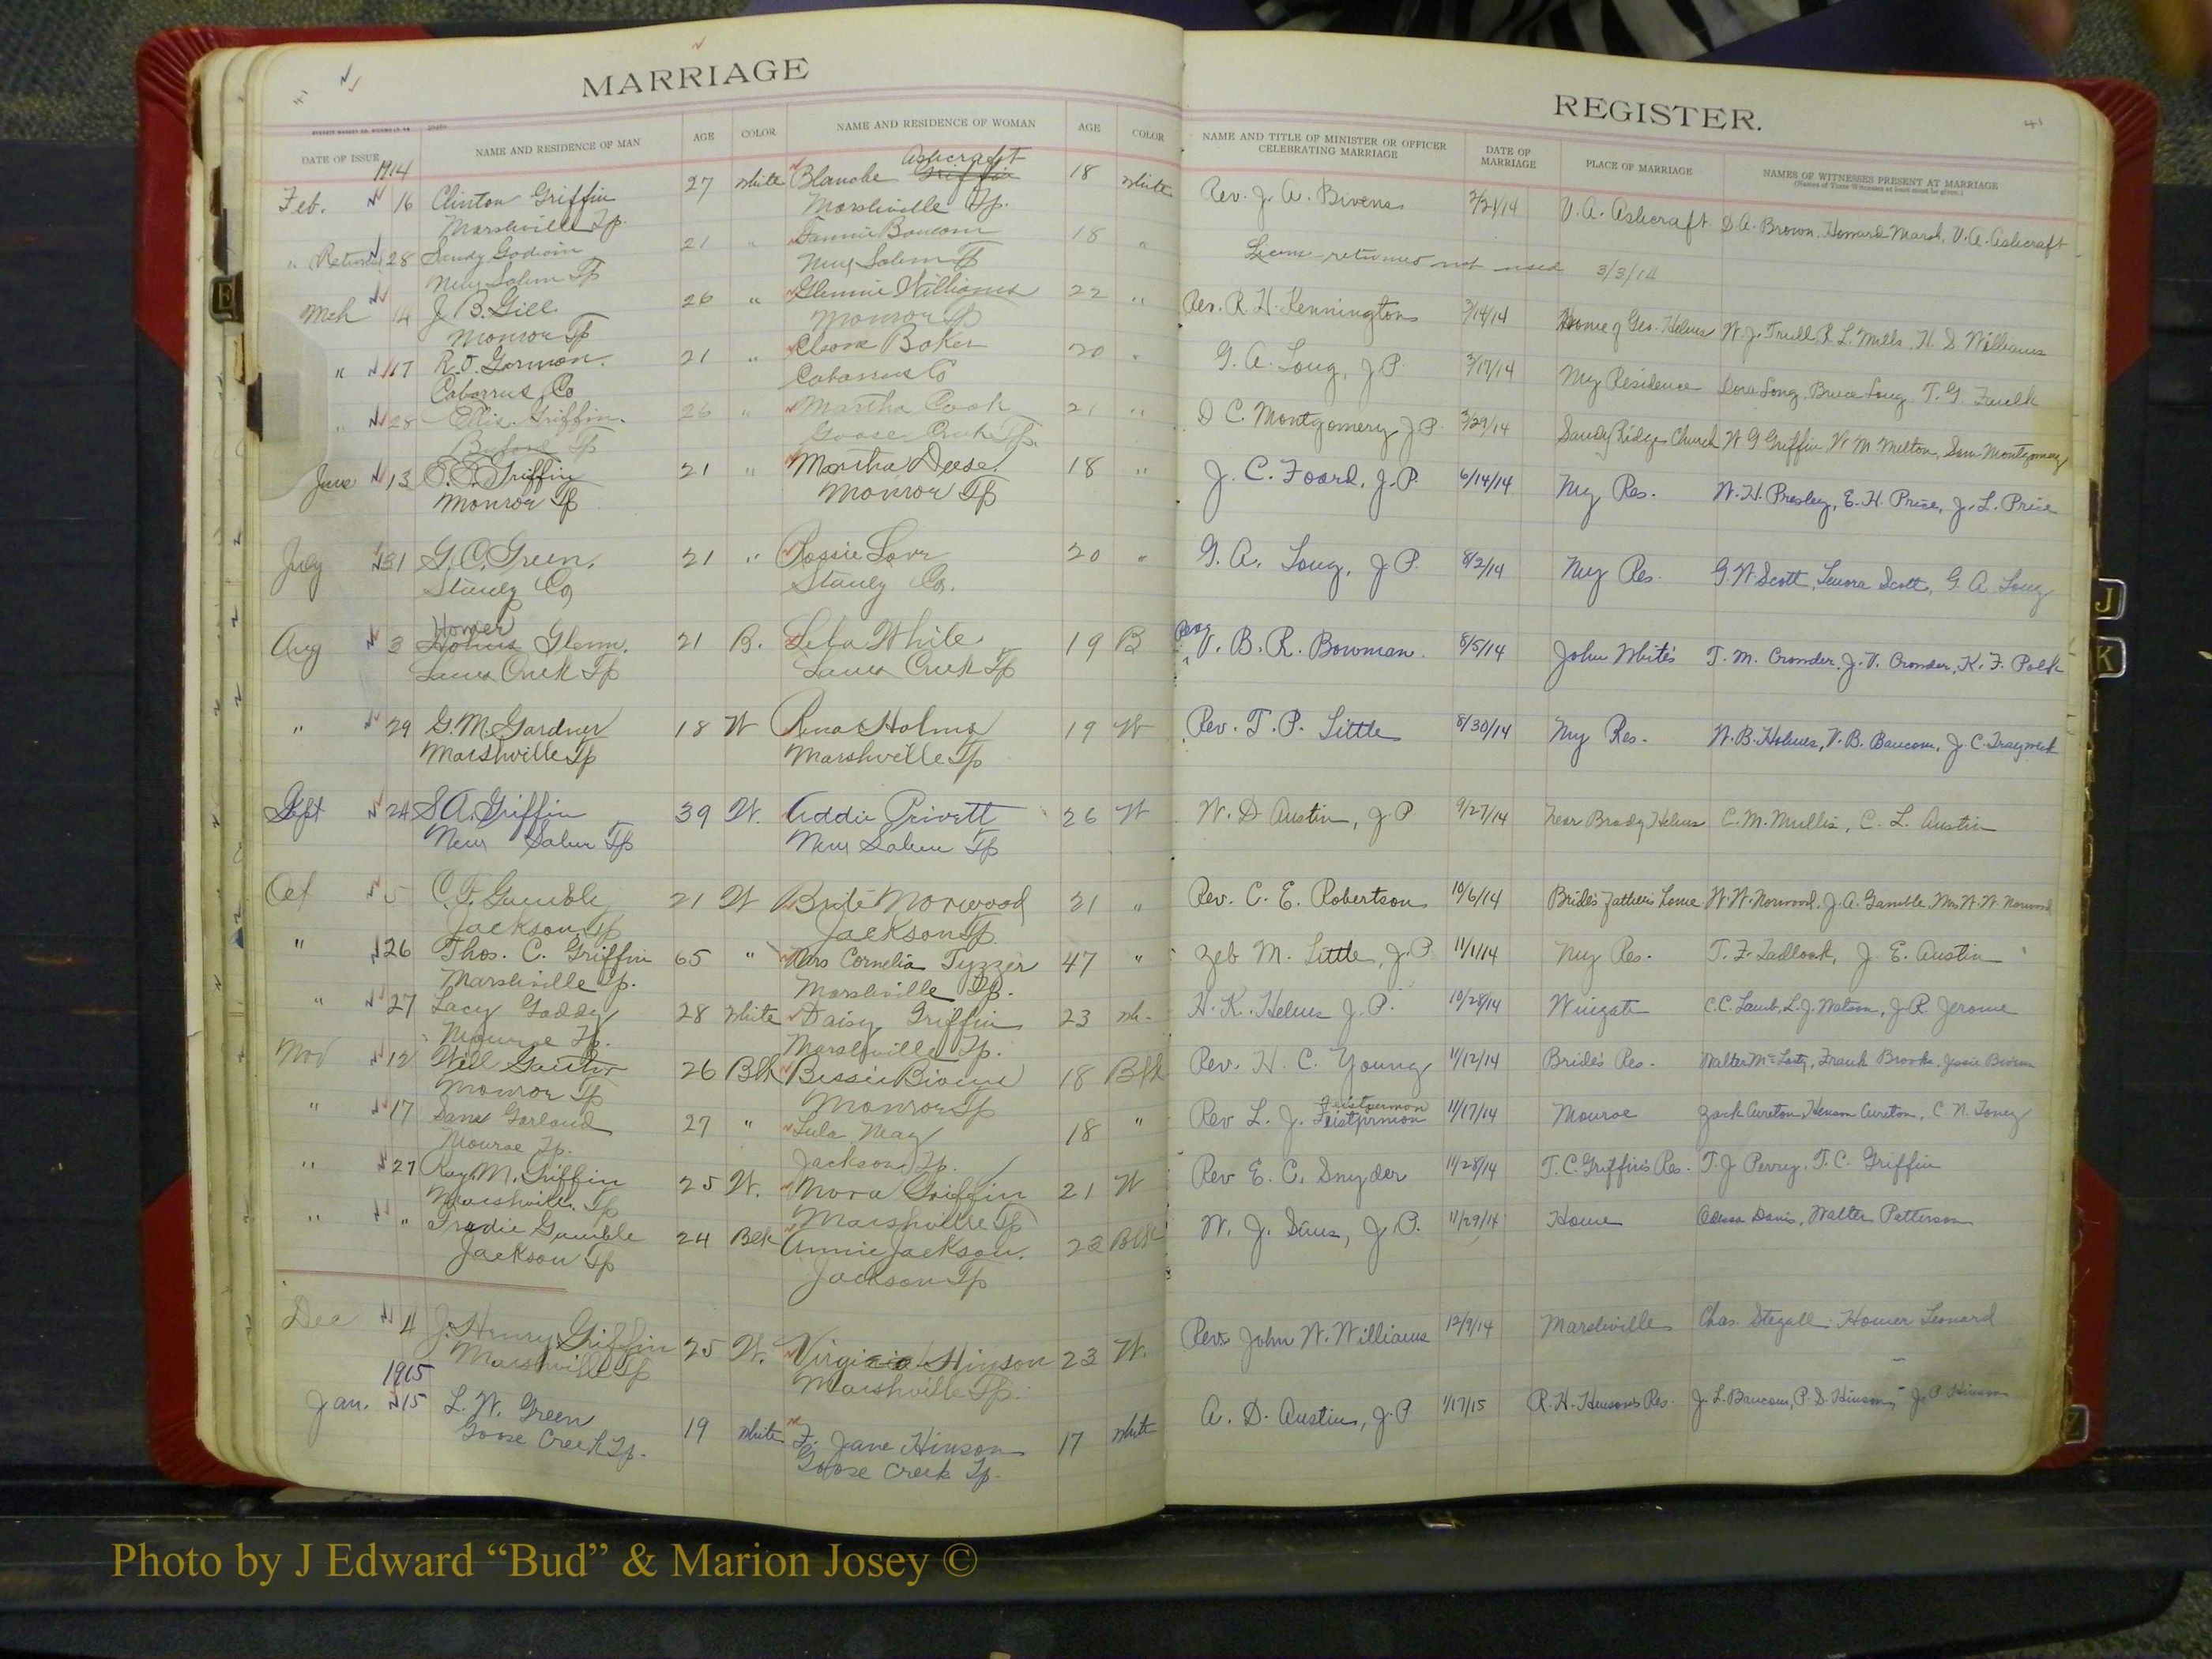 MARRIAGE
REGISTER.
41
DATE OF ISSUE
NAME AND RESIDENCE OF MAN
AGE
COLOR
NAME AND RESIDENCE OF WOMAN
AGE
COLOR
NAME AND TITLE OF MINISTER OR OFFICER
CELEBRATING MARRIAGE
DATE OF
MARRIAGE
PLACE OF MARRIAGE
NAMES OF WITNESSES PRESENT AT MARRIAGE
(Names of Three Witnesses at least must be given.)
1914
Ashcraft
Feb. 16 Clinton Griffin 27 White Blanche Griffin 18 White Rev. J. A. Bivens 2/21/14 V. A. Ashcraft D. A. Brown, Howard Marsh, V. A. Ashcraft
Marshville Tp. Marshville Tp.
" Return 28 Sandy Godwin 21 " Baucom 18 " License returned not used 3/3/14
New Salem Tp New Salem Tp
Mch 14 J. B. Gill 26 " Glennie Williams 22 " Rev. R. H. Kennington 3/14/14 Home of Geo. Helms W. J. Trull, R. L. Mills, H. D. Williams
Monroe Tp Monroe Tp
" 17 R. O. Gorman. 21 " Baker 20 " G. A. Long, J.P. 3/17/14 My Residence Dora Long, Bruce Long, T. G. Faulk
Cabarrus Co Cabarrus Co
" 28 Ellis Griffin. 26 " Martha Cook 21 " D C. Montgomery J P. 3/29/14 Sandy Ridge Church W G Griffin, W. M. Melton, Sam Montgomery
Buford Tp Goose Creek Tp.
June 13 Griffin 21 " Martha Deese. 18 " J. C. Foard, J.P. 6/14/14 My Res. W. H. Presley, E. H. Price, J. L. Price
Monroe Tp Monroe Tp
July 31 G. O. Green. 21 " Love 20 " G. A. Long, J.P. 8/2/14 My Res. G. W Scott, Lenora Scott, G. A. Long
Stanly Co Stanly Co.
Homer
Aug 3 Glenn. 21 B. Lela White 19 B Revd V. B. R. Bowman. 8/5/14 John White's T. M. Crowder, J. V. Crowder, K. F. Polk
Lanes Creek Tp Lanes Creek Tp
" 29 G. M. Gardner 18 W Rena Holms 19 W Rev. T. P. Little 8/30/14 My Res. W. B. Holmes, V. B. Baucom, J. C. Traywick
Marshville Tp Marshville Tp
Sept 24 S. A. Griffin 39 W. Addie Privett 26 W W. D Austin, J P. 9/27/14 Near Brady Helms C. M. Mullis, C. L. Austin
New Salem Tp New Salem Tp
Oct 5 Gamble 21 W Norwood 21 " Rev. C. E. Robertson 10/6/14 Bride's Father's Home W. W. Norwood, J. A. Gamble, Mrs W. W. Norwood
Jackson Tp Jackson Tp.
" 26 Thos. C. Griffin 65 " Mrs Cornelia Tyzzer 47 " Zeb M. Little, J.P. 11/1/14 My Res. T. F. Tadlock, J. E. Austin
Marshville Tp. Marshville Tp.
" 27 Lacy Gaddy 28 White Daisy Griffin 23 Wh. H. K. Helms J.P. 10/28/14 Wingate C. C. Lamb, L. J. Watson, J. R. Jerome
Monroe Tp. Marshville Tp.
Nov 12 Will 26 Blk Bessie Bivens 18 Blk Rev. H. C. Young 11/12/14 Bride's Res. Walter McLarty, Frank Brooks, Jessie Bivens
Monroe Tp Monroe Tp
" 17 Garland 27 " Lula May 18 " Rev L. J. 11/17/14 Monroe Zack Cureton, Henson Cureton, C. N. Toney
Monroe Tp. Jackson Tp.
" 27 Ray M. Griffin 25 W. Nora Griffin 21 W Rev E. C. Snyder 11/28/14 T. C. Griffin's Res. T. J. Perry, T. C. Griffin
Marshville Tp Marshville Tp
" " Gamble 24 Blk Annie Jackson. 23 Blk W. J. Sims, J.P. 11/29/14 Home Odessa Davis, Walter Patterson
Jackson Tp Jackson Tp
Dec 4 J. Henry Griffin 25 W. Virginia Hinson 23 W. Rev. John W. Williams 12/9/14 Marshville Chas. Stegall, Homer Leonard
Marshville Tp Marshville Tp.
1915
Jan. 15 L. W. Green 19 White F. Jane Hinson 17 White A. D. Austin, J.P 1/17/15 R. H. Hinson's Res. J. L. Baucom, P. D. Hinson, J. P. Hinson
Goose Creek Tp. Goose Creek Tp.
E
J
K
Photo by J Edward “Bud” & Marion Josey ©